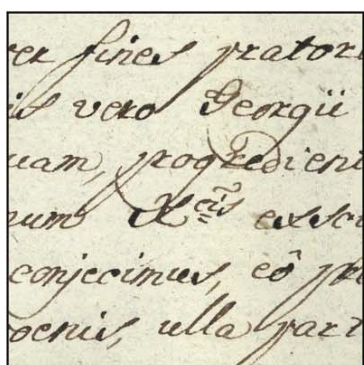 per fines prator
is vero Georgii
uam, progredien
num X exsc
conjecimus, eô pr
oenis, ulla part